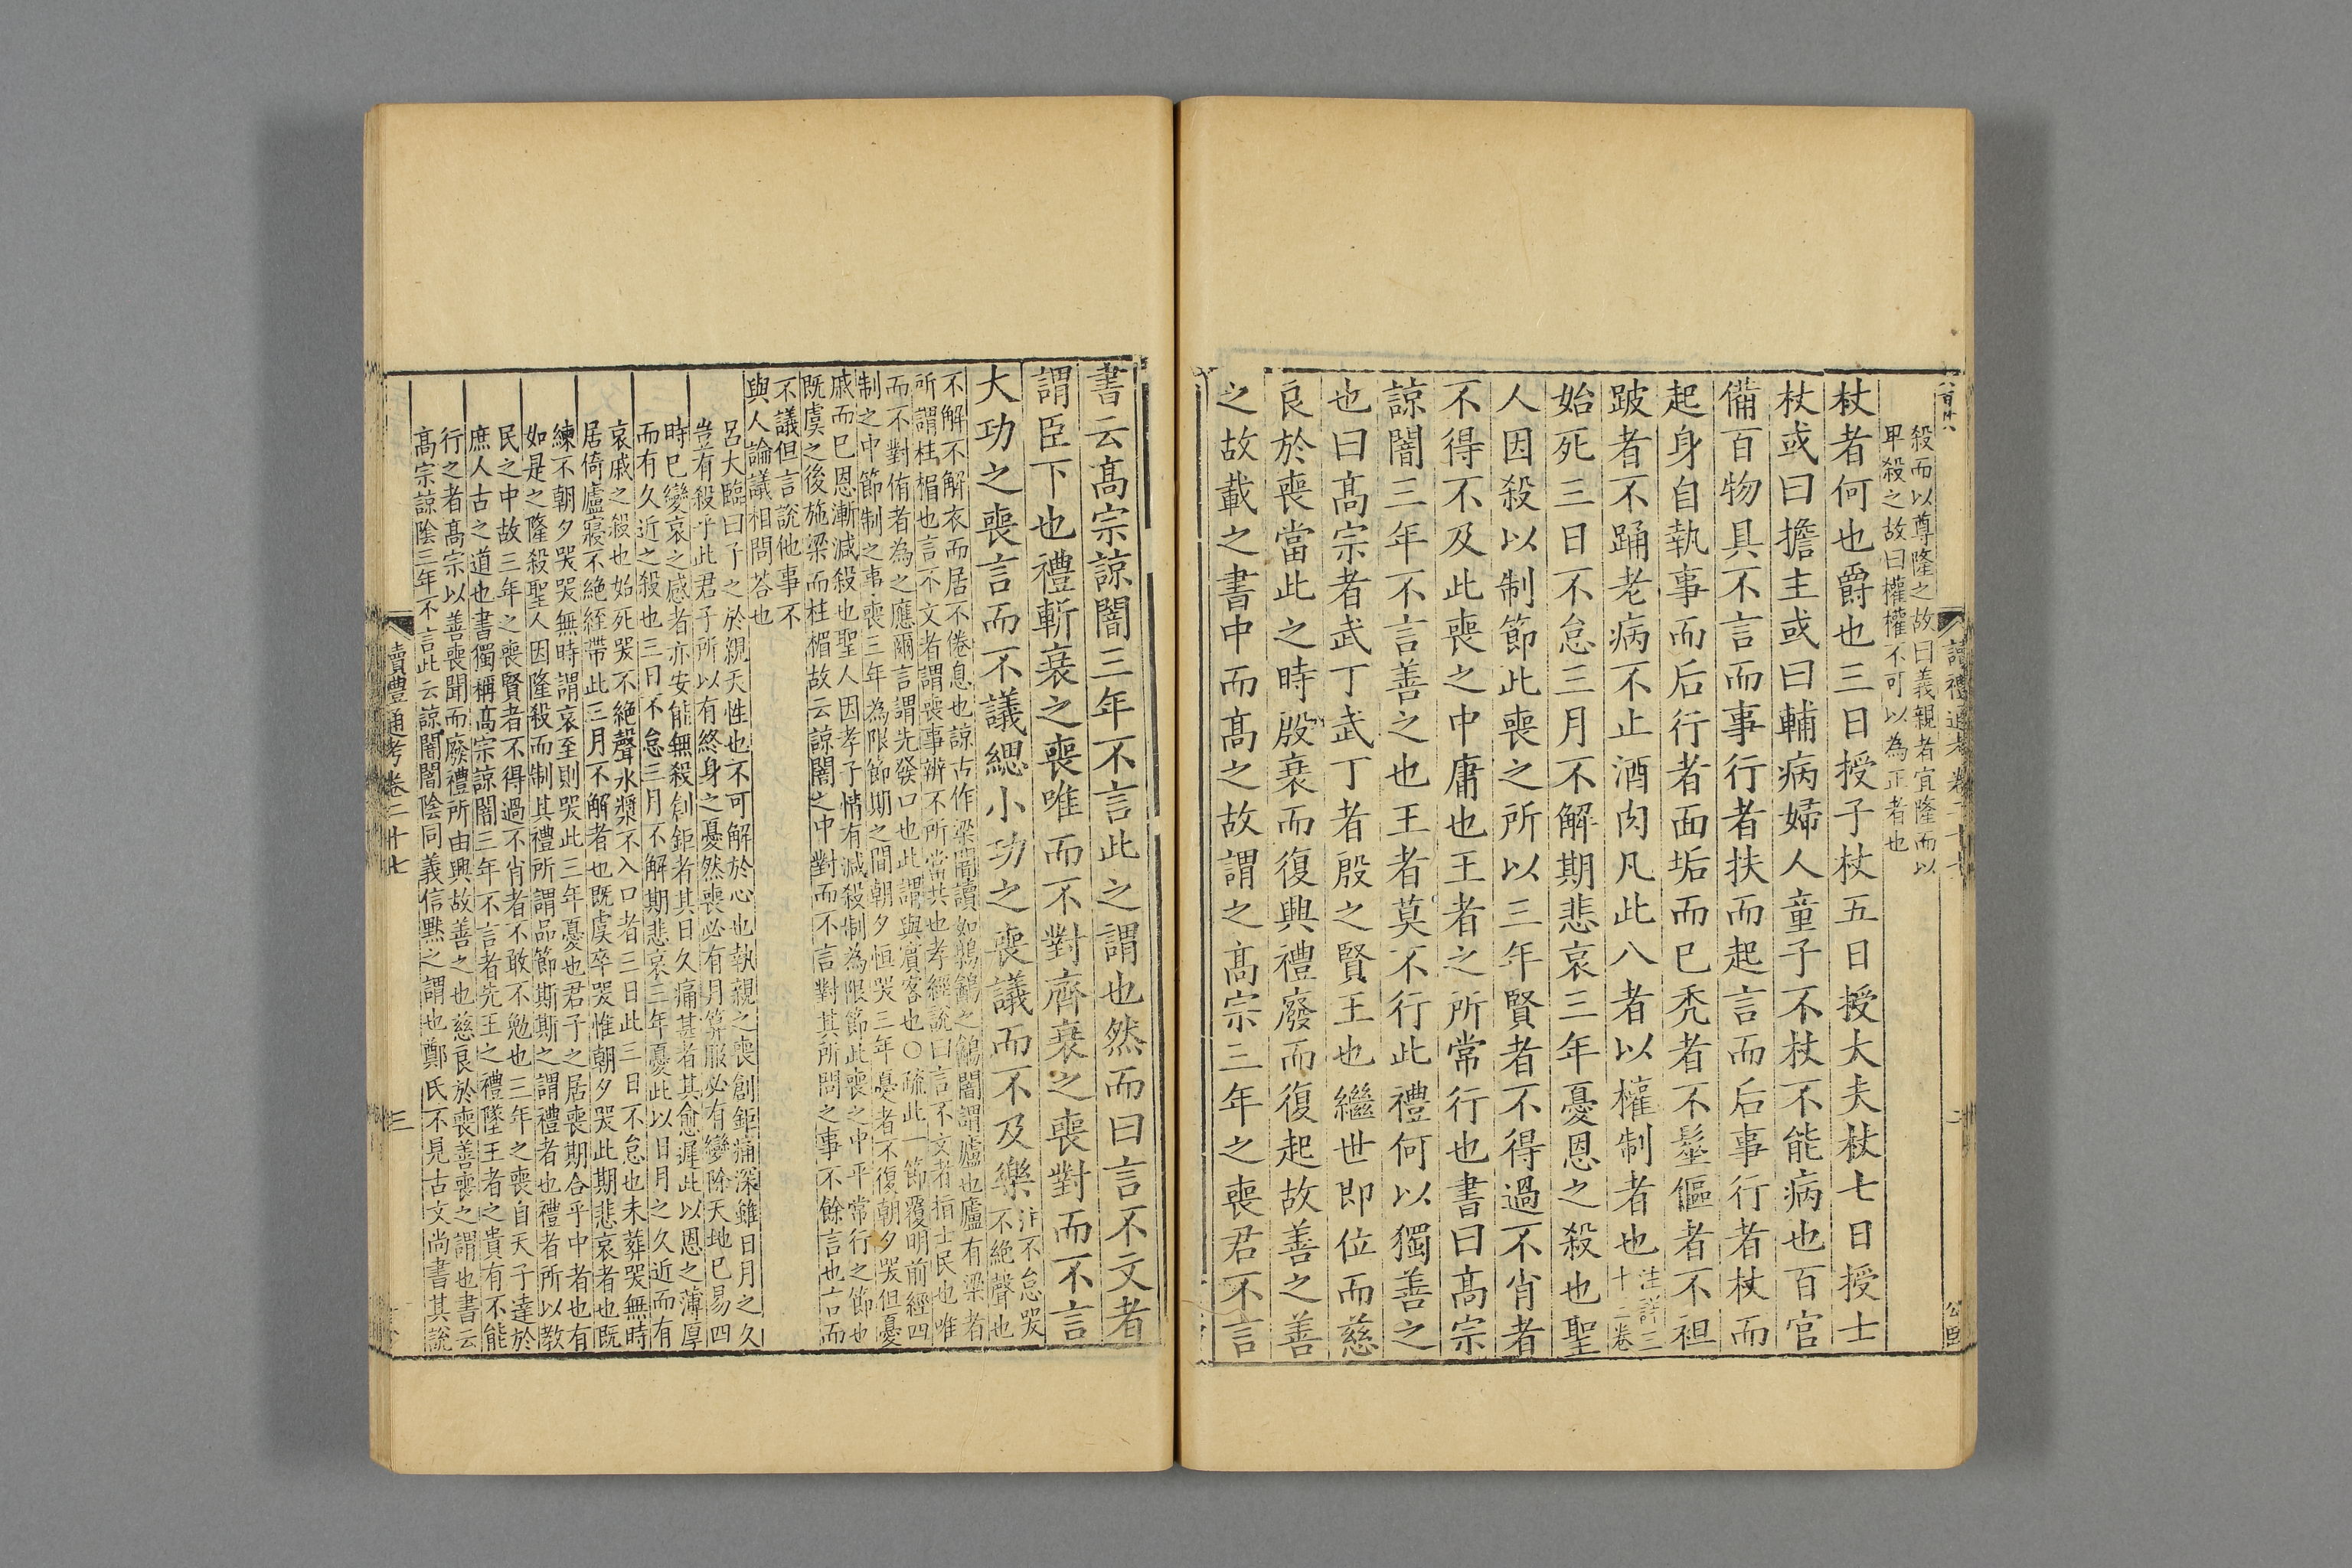 殺而以尊隆之故曰義親者宜隆而以
卑殺之故曰權權不可以為正者也
杖者何也爵也三日授子杖五日授大夫杖七日授士
杖或曰擔主或曰輔病婦人童子不杖不能病也百官
備百物具不言而事行者扶而起言而后事行者杖而
起身自執事而后行者面垢而已禿者不髽傴者不袒
跛者不踊老病不止酒肉凡此八者以權制者也
注詳三
十二卷
始死三日不怠三月不解期悲哀三年憂恩之殺也聖
人因殺以制節此喪之所以三年賢者不得過不肖者
不得不及此喪之中庸也王者之所常行也書曰高宗
諒闇三年不言善之也王者莫不行此禮何以獨善之
也曰高宗者武丁武丁者殷之賢王也繼世即位而慈
良於喪當此之時殷衰而復興禮廢而復起故善之善
之故載之書中而高之故謂之高宗三年之喪君不言
書云高宗諒闇三年不言此之謂也然而曰言不文者
謂臣下也禮斬衰之喪唯而不對齊衰之喪對而不言
大功之喪言而不議緦小功之喪議而不及樂
注不怠哭
不絕聲也
不解不解衣而居不倦息也諒古作梁闇讀如鶉鷂之鷂闇謂廬也廬有梁者
所謂柱楣也言不文者謂喪事辨不所當共也孝經說曰言不文者指士民也唯
而不對侑者為之應爾言謂先發口也此謂與賓客也○疏此一節覆明前經四
制之中節制之事喪三年為限節期之間朝夕恒哭三年憂者不復朝夕哭但憂
戚而已恩漸減殺也聖人因孝子情有減殺制為限節此喪之中平常行之節也
既虞之後施梁而柱楣故云諒闇之中對而不言對其所問之事不餘言也言而
不議但言說他事不
與人論議相問荅也
呂大臨曰子之於親天性也不可解於心也執親之喪創鉅痛深雖日月之久
豈有殺乎此君子所以有終身之憂然喪必有月筭服必有變除天地已易四
時已變哀之感者亦安能無殺創鉅者其日久痛甚者其愈遲此以恩之薄厚
而有久近之殺也三日不怠三月不解期悲哀三年憂此以日月之久近而有
哀戚之殺也始死哭不絕聲水漿不入口者三日此三日不怠也未葬哭無時
居倚廬寢不絕絰帶此三月不解者也既虞卒哭惟朝夕哭此期悲哀者也既
練不朝夕哭哭無時謂哀至則哭此三年憂也君子之居喪期合乎中者也有
如是之隆殺聖人因隆殺而制其禮所謂品節斯斯之謂禮者也禮者所以教
民之中故三年之喪賢者不得過不肖者不敢不勉也三年之喪自天子達於
庶人古之道也書獨稱高宗諒闇三年不言者先王之禮墜王者之貴有不能
行之者高宗以善喪聞而廢禮所由興故善之也慈良於喪善喪之謂也書云
高宗諒陰三年不言此云諒闇闇陰同義信默之謂也鄭氏不見古文尚書其說
讀禮通考卷二十七
三